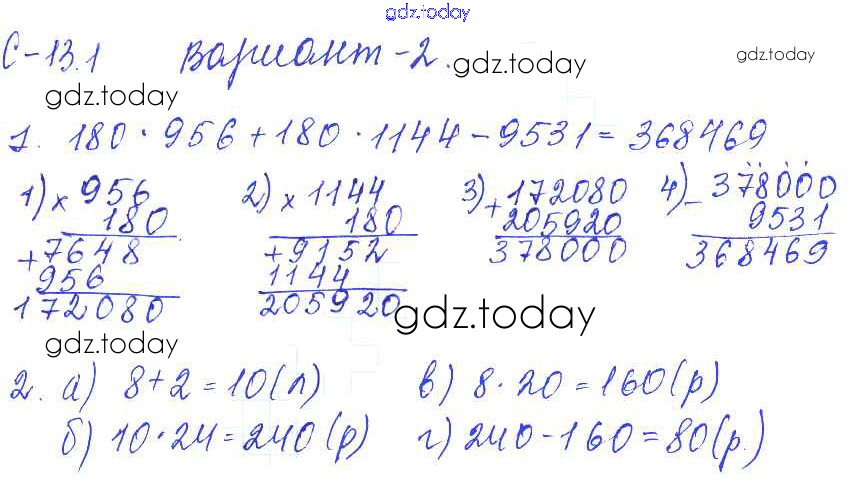 gdz.today
С-13.1 Вариант-2. gdz.today gdz.today
gdz.today
1. 180·956+180·1144-9531=368469
1) × 956 2) × 1144 3) + 172080 4) - 378000
180 180 205920 9531
+7648 +9152 378000 368469
956 1144
172080 205920 gdz.today
gdz.today
2. а) 8+2=10(л) в) 8·20=160(р)
б) 10·24=240(р) г) 240-160=80(р.)